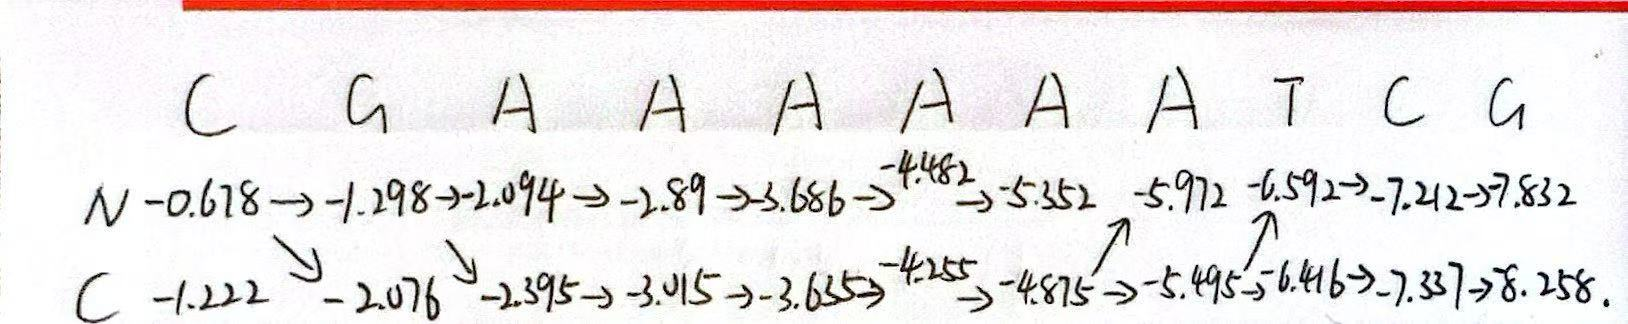 C G A A A A A A T C G
N -0.678 → -1.298 → -2.094 → -2.89 → -3.686 → -4.482 → -5.352 -5.972 -6.592 → -7.212 → -7.832
C -1.222 -2.076 -2.395 → -3.015 → -3.635 → -4.255 → -4.875 → -5.495 → -6.416 → -7.337 → -8.258.